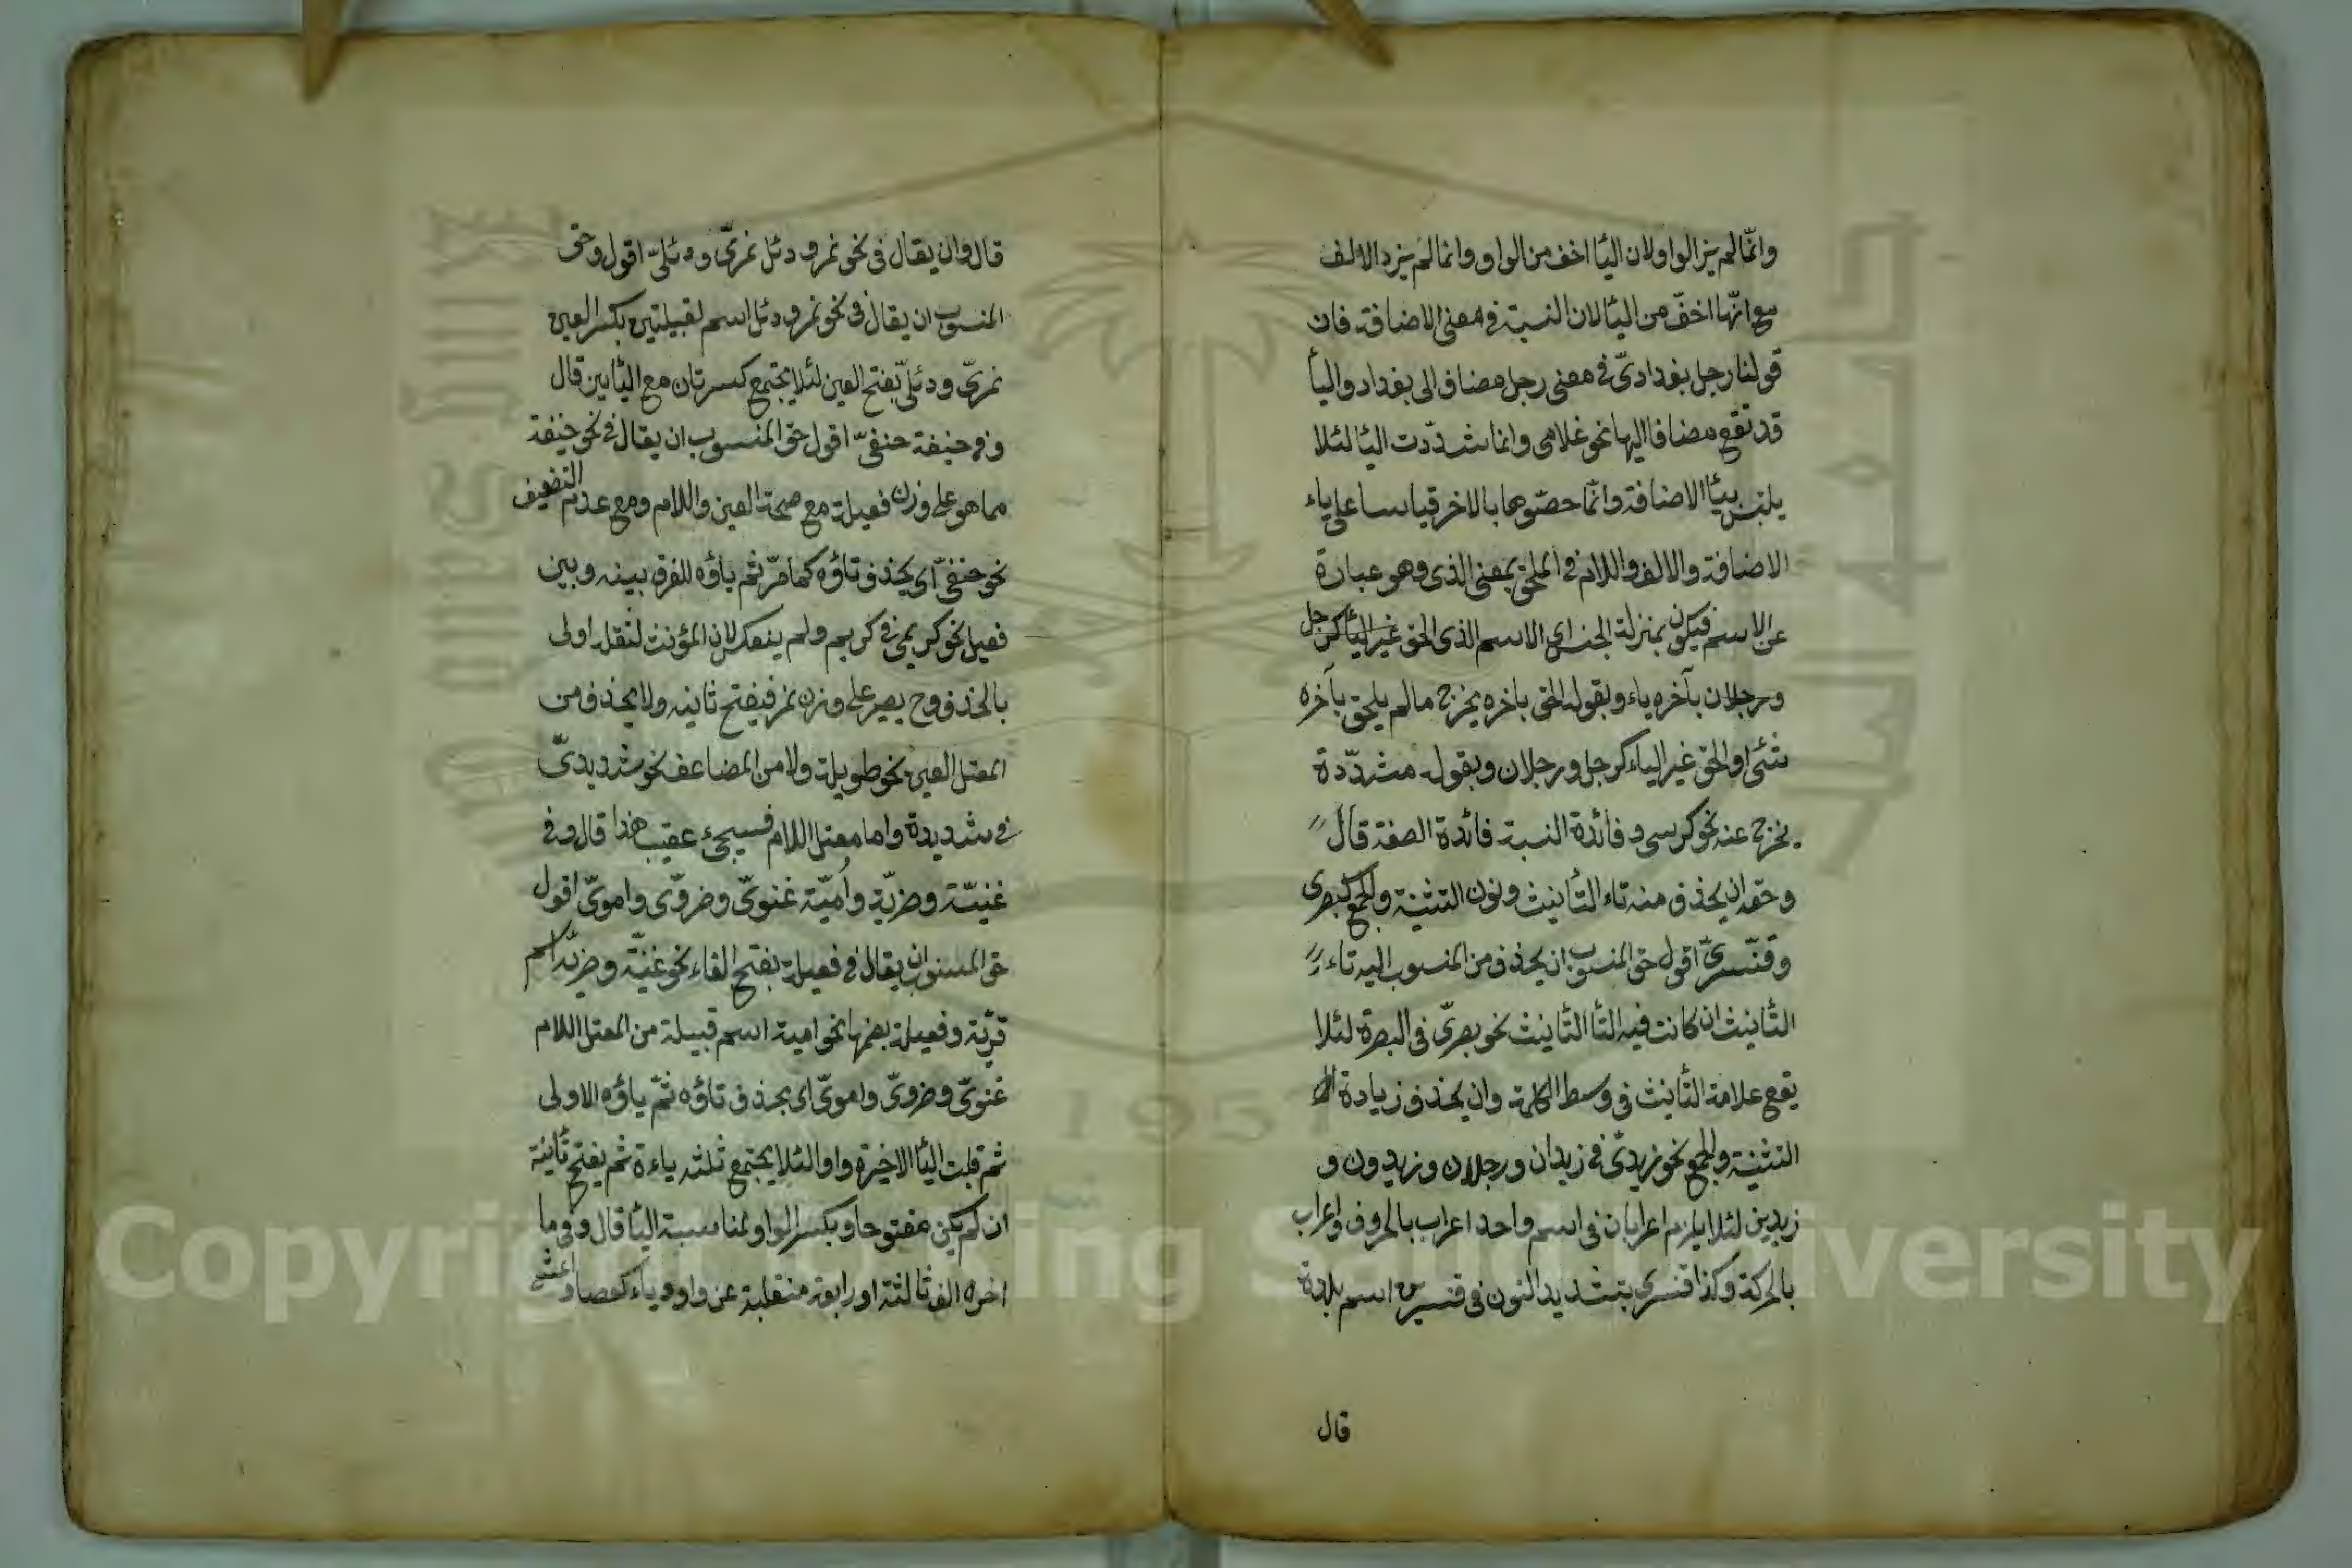 وانّما لم يزد الواو لان اليأ اخف من الواو وانما لم يزد الالف
مع انّها اخفّ من اليأ لان النسبة فى معنى الاضافة فان
قولنا رجل بغدادىّ فى معنى رجل مضاف الى بغداد واليأ
قد تقع مضافا اليها نحو غلامى وانما شدّدت اليأ لئلا
يلتبس بيأ الاضافة وانّما خصّوها بالاخر قياسا على ياء
الاضافة والالف واللام فى الملحق بمعنى الذى وهو عبارة
عن الاسم فيكون بمنزلة الجنس اى الاسم الذى الحق غير اليأ كرجل
ورجلان بآخره ياء وبقوله الحق باخره يخرج مالم يلحق بآخره
شئ او الحق غير الياء كرجل ورجلان وبقوله مشدّدة
يخرج عنه نحو كرسى وفائدة النسبة فائدة الصفة قال
وحقه ان يحذف منه تاء التأنيث ونون التثنية والجمع كبصرى
وقنّسرىّ اقول حق المنسوب ان يحذف من المنسوب اليه تاء
التأنيث ان كانت فيه التأ التأنيث نحو بصرىّ فى البصرة لئلا
يقع علامة التأنيث فى وسط الكلمة وان يحذف زيادة
التثنية والجمع نحو زيدىّ فى زيدان ورجلان وزيدون و
زيدين لئلا يلزم اعرابان فى اسم واحد اعراب بالحروف واعراب
بالحركة وكذا قنسرى بتشديد النون فى قنسرين اسم بلدة
قال
قال وان يقال فى نحو نمر ودئل نمرىّ ودئلىّ اقول وحق
المنسوب ان يقال فى نحو نمر ودئل اسم لقبيلتين بكسر العين
نمرىّ ودئلىّ بفتح العين لئلا يجتمع كسرتان مع اليأين قال
وفى حنيفة حنفىّ اقول حق المنسوب ان يقال فى نحو حنيفة
مما هو على وزن فعيلة مع صحة العين واللام ومع عدم التضعيف
نحو حنفىّ اى يحذف تاؤه كما مرّ ثم ياؤه للفرق بينه وبين
فعيل نحو كريمى فى كريم ولم ينعكس لان المؤنث لثقله اولى
بالحذف وح يصير على وزن نمر فيفتح ثانيه ولا يحذف من
المعتل العين نحو طويلة ولا من المضاعف نحو شديدىّ
فى شديدة واما معتل اللام فسيجئ عقيب هذا قال وفى
غنيّة وضريّة واُميّة غنوىّ وضروىّ واموىّ اقول
حق المنسوب ان يقال فى فعيلة بفتح الفاء نحو غنيّة وضريّة اسم
قرية وفعيلة بضمها نحو امية اسم قبيلة من المعتل اللام
غنوىّ وضروىّ واموىّ اى يحذف تاؤه ثمّ ياؤه الاولى
ثم قلبت اليأ الاخيرة واوا لئلا يجتمع ثلثه ياءة ثم يفتح ثانية
ان لم يكن مفتوحا ويكسر الواو لمناسبة اليأ قال وفى ما
اخره الف ثالثة او رابعة منقلبة عن واو وياء كعصا واعشى